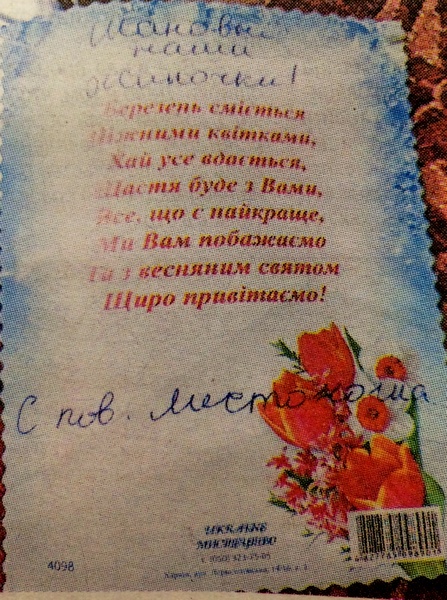 Шановні
наши
жіночки!
Березень сміється
Ніжними квітками,
Хай усе вдається,
Щастя буде з Вами,
Все, що є найкраще,
Ми Вам побажаємо
Та з весняним святом
Щиро привітаємо!
С пов. Листоноша
UKRAINE
МИСТЕЦТВО
4098